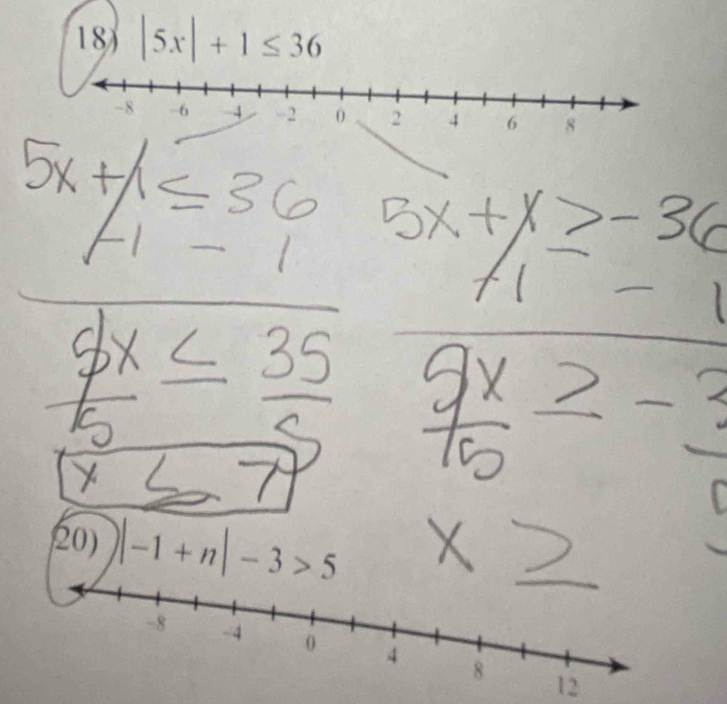 18) |5x| + 1 ≤ 36
-8 -6 -4 -2 0 2 4 6 8
5x + 1 ≤ 36
-1 - 1
5x ≤ 35
5 5
x ≤ 7
5x + 1 ≥ -36
-1 - 1
5x ≥ -3
5
x ≥
20) |-1 + n| - 3 > 5
-8 -4 0 4 8 12